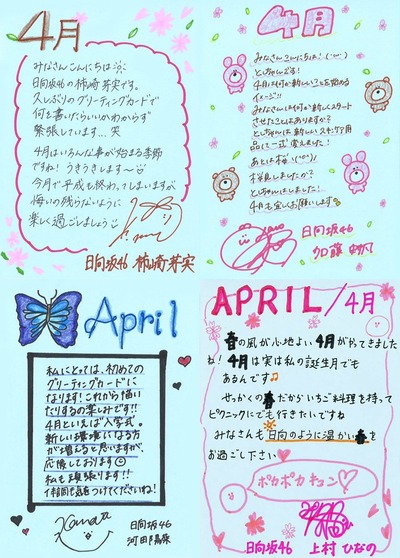 4月
みなさんこんにちは
日向坂46の柿崎芽実です。
久しぶりのグリーティングカードで
何を書いたらいいかわからず
緊張しています…笑
4月はいろんな事が始まる季節
ですね！うきうきします〜
今月で平成も終わってしまいますが
悔いの残らないように
楽しく過ごしましょう
日向坂46 柿崎芽実
4月
みなさんこんにちは！
としちゃんです！
4月は何か新しいことを始める
イメージ!!
みなさんは何か新しくスタート
させたことはありますか？
としちゃんは新しいスキンケア用
品に一式変えました！
あとは桜
お花見しましたか？
としちゃんはしました！
4月も宜しくお願いします
日向坂46
加藤史帆
April
私にとっては、初めての
グリーティングカードに
なります！これから描い
たりするの楽しみです!!
4月といえば入学式。
新しい環境になる方
が増えると思いますが、
応援しております
私も頑張ります!!
体調も気をつけてくださいね！
Kawata
日向坂46
河田陽菜
APRIL/4月
春の風が心地よい4月がやってきました
ね！4月は実は私の誕生月でも
あるんです♫
せっかくの春だからいちご料理を持って
ピクニックにでも行きたいですね
みなさんも日向のように温かい春を
お過ごし下さい♡
ポカポカキュン♡
日向坂46 上村ひなの